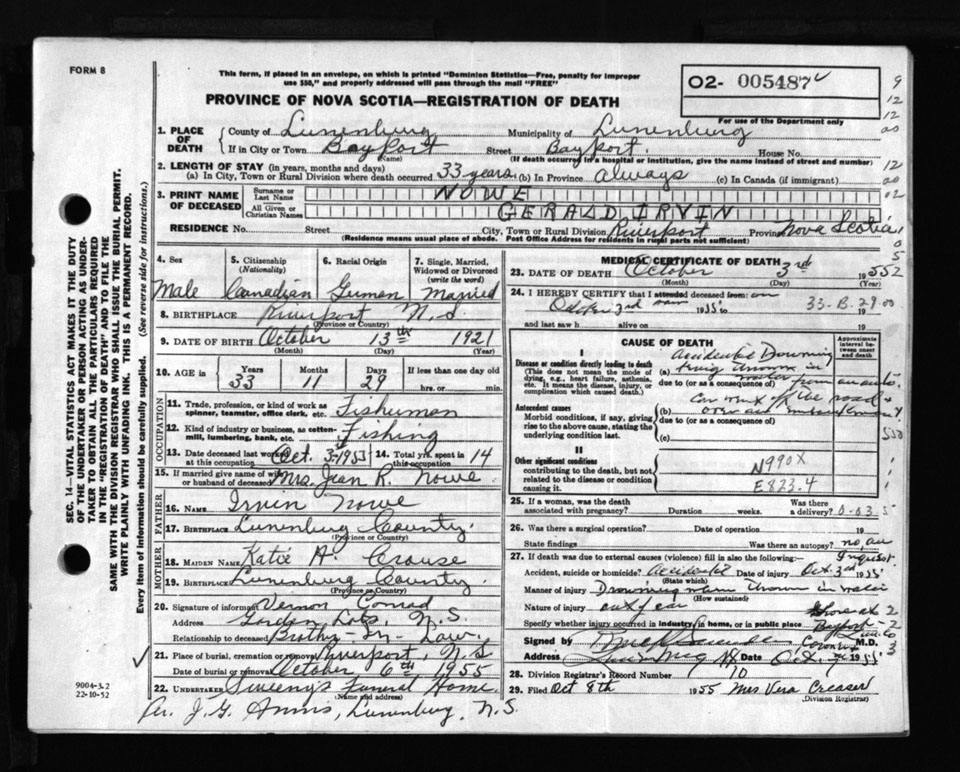 FORM 8
This form, if placed in an envelope, on which is printed "Dominion Statistics—Free, penalty for improper
use $50," and properly addressed will pass through the mail "FREE"
PROVINCE OF NOVA SCOTIA—REGISTRATION OF DEATH
O2- 005487
For use of the Department only
1. PLACE OF DEATH County of Lunenburg Municipality of Lunenburg
If in City or Town Bayport (Name) Street Bayport. House No.
(If death occurred in a hospital or institution, give the name instead of street and number)
2. LENGTH OF STAY (in years, months and days)
(a) In City, Town or Rural Division where death occurred 33 years (b) In Province always (c) In Canada (if immigrant)
3. PRINT NAME OF DECEASED Surname or Last Name NOWE
All Given or Christian Names GERALD IRVIN
RESIDENCE No. Street City, Town or Rural Division Riverport Province Nova Scotia
(Residence means usual place of abode. Post Office Address for residents in rural parts not sufficient)
4. Sex Male
5. Citizenship (Nationality) Canadian
6. Racial Origin German
7. Single, Married, Widowed or Divorced (write the word) Married
8. BIRTHPLACE Riverport N.S.
(Province or Country)
9. DATE OF BIRTH October 13th 1921
(Month) (Day) (Year)
10. AGE in Years 33 Months 11 Days 29 If less than one day old hrs. or min.
OCCUPATION
11. Trade, profession, or kind of work as spinner, teamster, office clerk, etc. Fisherman
12. Kind of industry or business, as cotten-mill, lumbering, bank, etc. Fishing
13. Date deceased last worked at this occupation Oct. 3-1953 14. Total yrs. spent in this occupation 14
15. If married give name of wife or husband of deceased Mrs. Jean R. Nowe
FATHER
16. Name Irvin Nowe
17. Birthplace Lunenburg County.
(Province or Country)
MOTHER
18. Maiden Name Katie A. Crouse
19. Birthplace Lunenburg County.
(Province or Country)
20. Signature of informant Vernon Conrad
Address N.S.
Relationship to deceased Brother-In-Law.
21. Place of burial, cremation or removal Riverport, N.S
Date of burial or removal October 6th 1955
22. UNDERTAKER Sweeny's Funeral Home
(Name and address)
Per. J.G. Lunenburg, N.S.
MEDICAL CERTIFICATE OF DEATH
23. DATE OF DEATH October 3rd 1955
(Month) (Day)
24. I HEREBY CERTIFY that I attended deceased from
33-B-29.00
and last saw h alive on 19
CAUSE OF DEATH
Approximate interval between onset and death
I
Disease or condition directly leading to death
(This does not mean the mode of dying, e.g., heart failure, asthenia, etc. It means the disease, injury, or complication which caused death.)
(a) Accidental Drowning
being thrown in
due to (or as a consequence of) water from an auto
Antecedent causes
Morbid conditions, if any, giving rise to the above cause, stating the underlying condition last.
(b) car off the road
due to (or as a consequence of)
(c)
II
Other significant conditions
contributing to the death, but not related to the disease or condition causing it.
N990X
E823.4
25. If a woman, was the death associated with pregnancy? Duration weeks. Was there a delivery?
26. Was there a surgical operation? Date of operation 19
State findings Was there an autopsy? no
27. If death was due to external causes (violence) fill in also the following: Inquest.
Accident, suicide or homicide? Accidental Date of injury Oct. 3rd 1955
(State which)
Manner of injury Drowning thrown in water
(How sustained)
Nature of injury out of car
Specify whether injury occurred in industry, in home, or in public place Bayport
Signed by Coroner M.D.
Address Lunenburg NS Date Oct. 7 1955
28. Division Registrar's Record Number 10
29. Filed Oct 8th 1955 Mrs Vera Creaser
(Division Registrar)
SEC. 14—VITAL STATISTICS ACT MAKES IT THE DUTY
OF THE UNDERTAKER OR PERSON ACTING AS UNDER-
TAKER TO OBTAIN ALL THE PARTICULARS REQUIRED
IN THE "REGISTRATION OF DEATH" AND TO FILE THE
SAME WITH THE DIVISION REGISTRAR WHO SHALL ISSUE THE BURIAL PERMIT.
WRITE PLAINLY WITH UNFADING INK. THIS IS A PERMANENT RECORD.
Every item of information should be carefully supplied. (See reverse side for instructions.)
9004-3.2
22-10-52